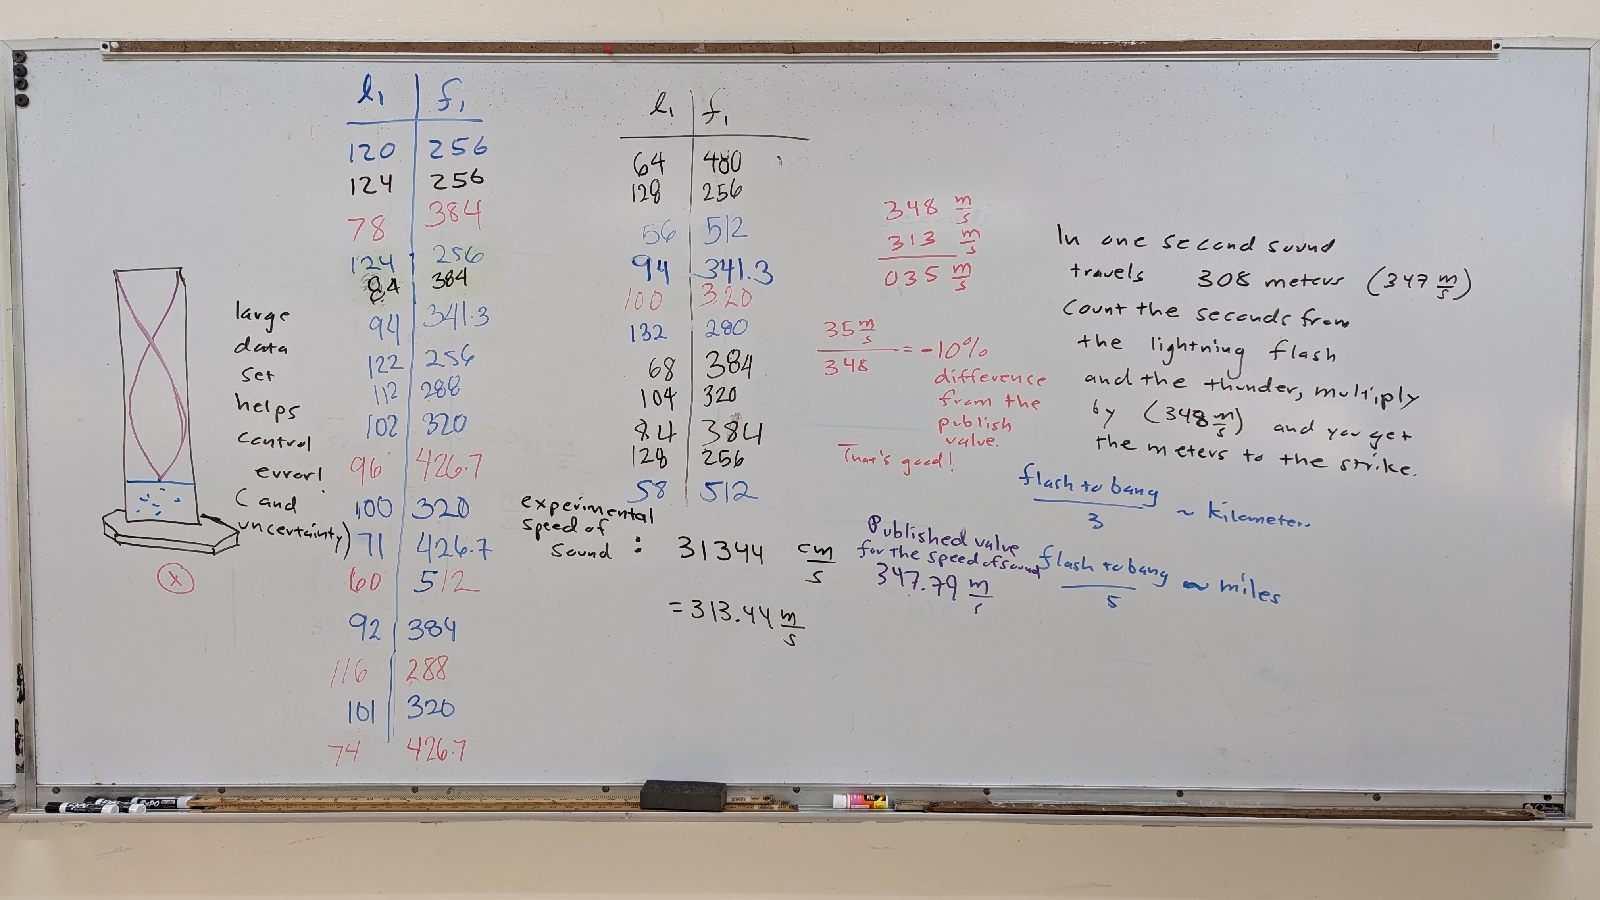 l₁ | f₁
120 | 256
124 | 256
78 | 384
124 | 256
84 | 384
94 | 341.3
122 | 256
112 | 288
102 | 320
96 | 426.7
100 | 320
71 | 426.7
60 | 512
92 | 384
116 | 288
101 | 320
74 | 426.7
large
data
set
helps
control
error!
(and
uncertainty)
X
l₁ | f₁
64 | 480
128 | 256
56 | 512
94 | 341.3
100 | 320
132 | 280
68 | 384
104 | 320
84 | 384
128 | 256
58 | 512
experimental
speed of
sound : 31344 cm/s
= 313.44 m/s
348 m/s
313 m/s
035 m/s
35 m/s / 348 = -10%
difference
from the
publish
value.
That's good!
Published value
for the speed of sound
347.79 m/s
In one second sound
travels 308 meters (347 m/s)
Count the seconds from
the lightning flash
and the thunder, multiply
by (348 m/s) and you get
the meters to the strike.
flash to bang / 3 ~ kilometers
flash to bang / 5 ~ miles
EXPO